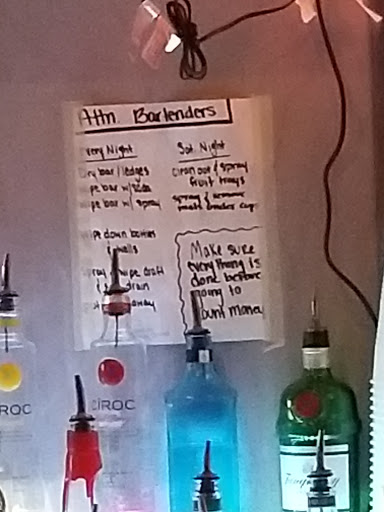 Attn Bartenders
very Night
Dry bar / ledges
ipe bar w/soda
ipe bar w/ spray
ipe down bottles
& walls
pray & wipe draft
& drain
away
Sat. Night
clean out & spray
fruit trays
spray &
Make sure
everything is
done before
going to
ount money
IROC
CÎROC
Tanqueray